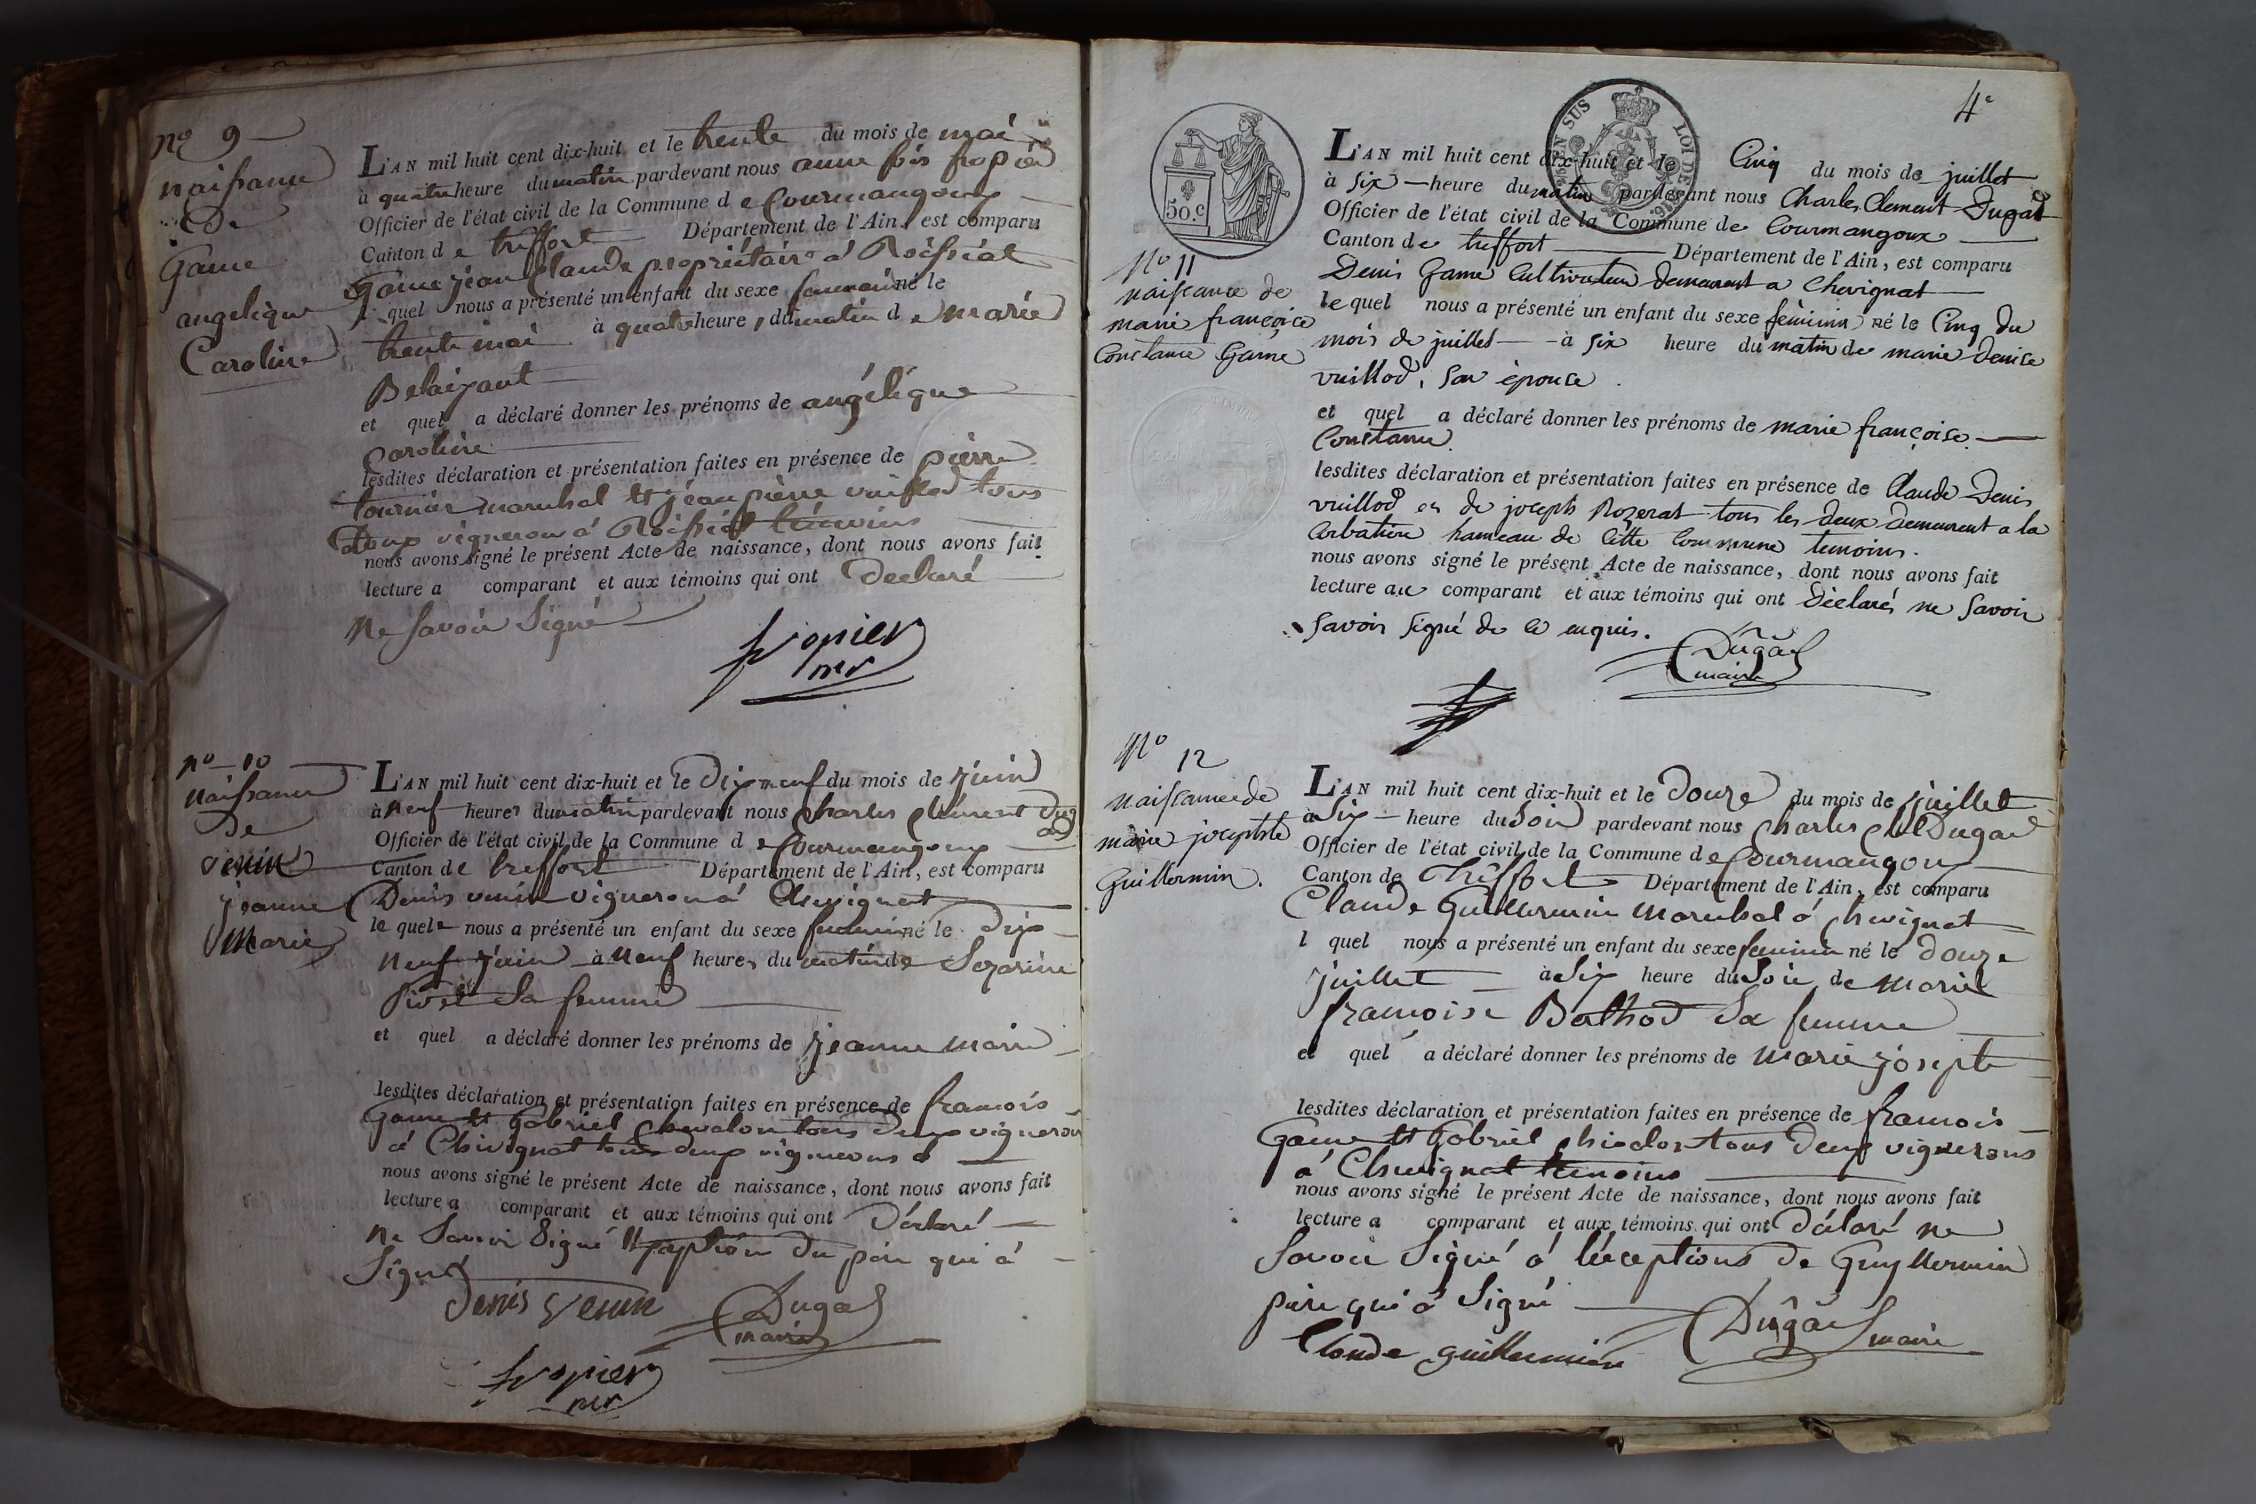 no 9
naissance
de
Game
angelique
Caroline
L'AN mil huit cent dix-huit et le trente du mois de mai
à quatre heure du matin pardevant nous
Officier de l'état civil de la Commune d e Courmangoux
Canton d e treffort Département de l'Ain, est comparu
Game jean Claude propriétaire à Roissiat
l quel nous a présenté un enfant du sexe feminin né le
trente mai à quatre heure, du matin d e marie
et quel a déclaré donner les prénoms de angélique
Caroline
lesdites déclaration et présentation faites en présence de pierre
tournier marechal et jean pierre vuillod tous
deux vigneron à Roissiat témoins
nous avons signé le présent Acte de naissance, dont nous avons fait
lecture a comparant et aux témoins qui ont declaré
ne savoir signé
fropier
no 10
naissance
de
venin
jeanne
Marie
L'AN mil huit cent dix-huit et le dix neuf du mois de juin
à neuf heures du matin pardevant nous Charles Clément Dug
ad
Officier de l'état civil de la Commune d e Courmangoux
Canton de treffort Département de l'Ain, est comparu
Denis venin vigneron à Chevignat
le quele nous a présenté un enfant du sexe feminin né le dix
neuf juin à neuf heures du matin de
sa femme
et quel a déclaré donner les prénoms de jeanne marie
lesdites déclaration et présentation faites en présence de francois
Game et Gabriel Chevalon tous deux vignerons
à Chevignat tous deux vignerons à
nous avons signé le présent Acte de naissance, dont nous avons fait
lecture a comparant et aux témoins qui ont déclaré
ne savoir signé du père qui à
Signé
Denis Venin Dugad
maire
fropier
4e
BIEN SUS LOI DE
50.c
No 11
naissance de
marie françoice
Constance Game
L'AN mil huit cent dix-huit et le Cinq du mois de juillet
à six heure du matin pardevant nous Charles Clement Dugad
Officier de l'état civil de la Commune de Courmangoux
Canton de treffort Département de l'Ain, est comparu
Denis Game Cultivateur demeurant a Chevignat
le quel nous a présenté un enfant du sexe féminin né le Cinq du
mois de juillet à six heure du matin de marie denise
vuillod, son épouse.
et quel a déclaré donner les prénoms de marie françoise
Constance.
lesdites déclaration et présentation faites en présence de Claude Denis
vuillod et de joseph Rozerat tous les deux demeurent a la
Corbatière hameau de Cette Commune temoins.
nous avons signé le présent Acte de naissance, dont nous avons fait
lecture au comparant et aux témoins qui ont déclarés ne savoir
savoir signé de ce enquis.
Dugad
maire
No 12
naissance de
marie josephte
Guillermin.
L'AN mil huit cent dix-huit et le douze du mois de juillet
à six heure du soir pardevant nous Charles Clt Dugad
Officier de l'état civil de la Commune d e Courmangoux
Canton de Treffort Département de l'Ain, est comparu
Claude Guillermin marechal à Chevignat
l quel nous a présenté un enfant du sexe feminin né le douze
juillet à six heure du soir de marie
francoise Bothod sa femme
et quel a déclaré donner les prénoms de marie josepte
lesdites déclaration et présentation faites en présence de francois
Game et Gabriel tous deux vignerons
à Chevignat temoins
nous avons signé le présent Acte de naissance, dont nous avons fait
lecture a comparant et aux témoins qui ont déclaré ne
savoir signé à l'éceptions de Guyllermin
père qui à signé
Claude guillermin Dugad maire